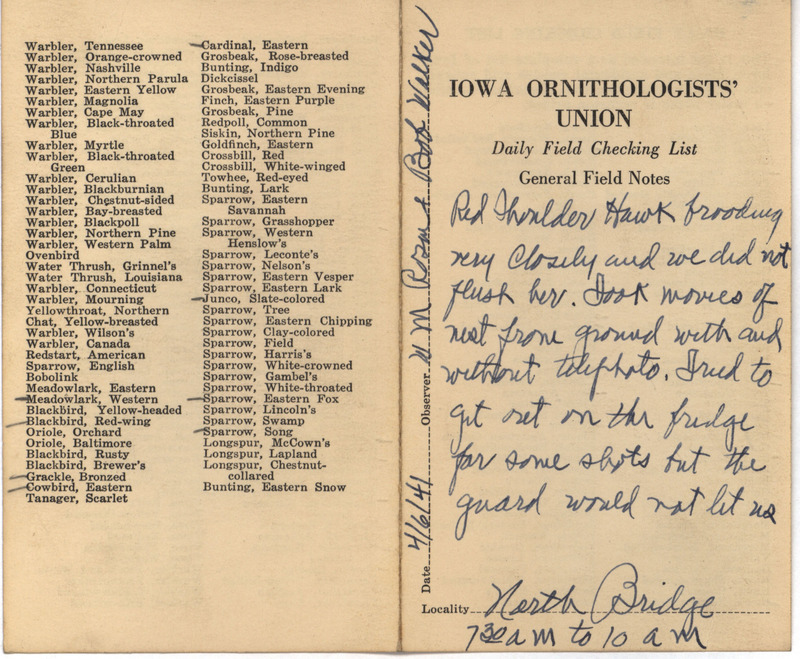 Warbler, Tennessee
Warbler, Orange-crowned
Warbler, Nashville
Warbler, Northern Parula
Warbler, Eastern Yellow
Warbler, Magnolia
Warbler, Cape May
Warbler, Black-throated
Blue
Warbler, Myrtle
Warbler, Black-throated
Green
Warbler, Cerulian
Warbler, Blackburnian
Warbler, Chestnut-sided
Warbler, Bay-breasted
Warbler, Blackpoll
Warbler, Northern Pine
Warbler, Western Palm
Ovenbird
Water Thrush, Grinnel's
Water Thrush, Louisiana
Warbler, Connecticut
Warbler, Mourning
Yellowthroat, Northern
Chat, Yellow-breasted
Warbler, Wilson's
Warbler, Canada
Redstart, American
Sparrow, English
Bobolink
Meadowlark, Eastern
Meadowlark, Western
Blackbird, Yellow-headed
Blackbird, Red-wing
Oriole, Orchard
Oriole, Baltimore
Blackbird, Rusty
Blackbird, Brewer's
Grackle, Bronzed
Cowbird, Eastern
Tanager, Scarlet
Cardinal, Eastern
Grosbeak, Rose-breasted
Bunting, Indigo
Dickcissel
Grosbeak, Eastern Evening
Finch, Eastern Purple
Grosbeak, Pine
Redpoll, Common
Siskin, Northern Pine
Goldfinch, Eastern
Crossbill, Red
Crossbill, White-winged
Towhee, Red-eyed
Bunting, Lark
Sparrow, Eastern
Savannah
Sparrow, Grasshopper
Sparrow, Western
Henslow's
Sparrow, Leconte's
Sparrow, Nelson's
Sparrow, Eastern Vesper
Sparrow, Eastern Lark
Junco, Slate-colored
Sparrow, Tree
Sparrow, Eastern Chipping
Sparrow, Clay-colored
Sparrow, Field
Sparrow, Harris's
Sparrow, White-crowned
Sparrow, Gambel's
Sparrow, White-throated
Sparrow, Eastern Fox
Sparrow, Lincoln's
Sparrow, Swamp
Sparrow, Song
Longspur, McCown's
Longspur, Lapland
Longspur, Chestnut-
collared
Bunting, Eastern Snow
Date 4/6/41 Observer W M Rosen & Bob Walker
IOWA ORNITHOLOGISTS'
UNION
Daily Field Checking List
General Field Notes
Red Shoulder Hawk brooding
very closely and we did not
flush her. Took movies of
nest from ground with and
without telephoto. Tried to
get out on the bridge
for some shots but the
guard would not let us
Locality North Bridge
7 30 a m to 10 a m